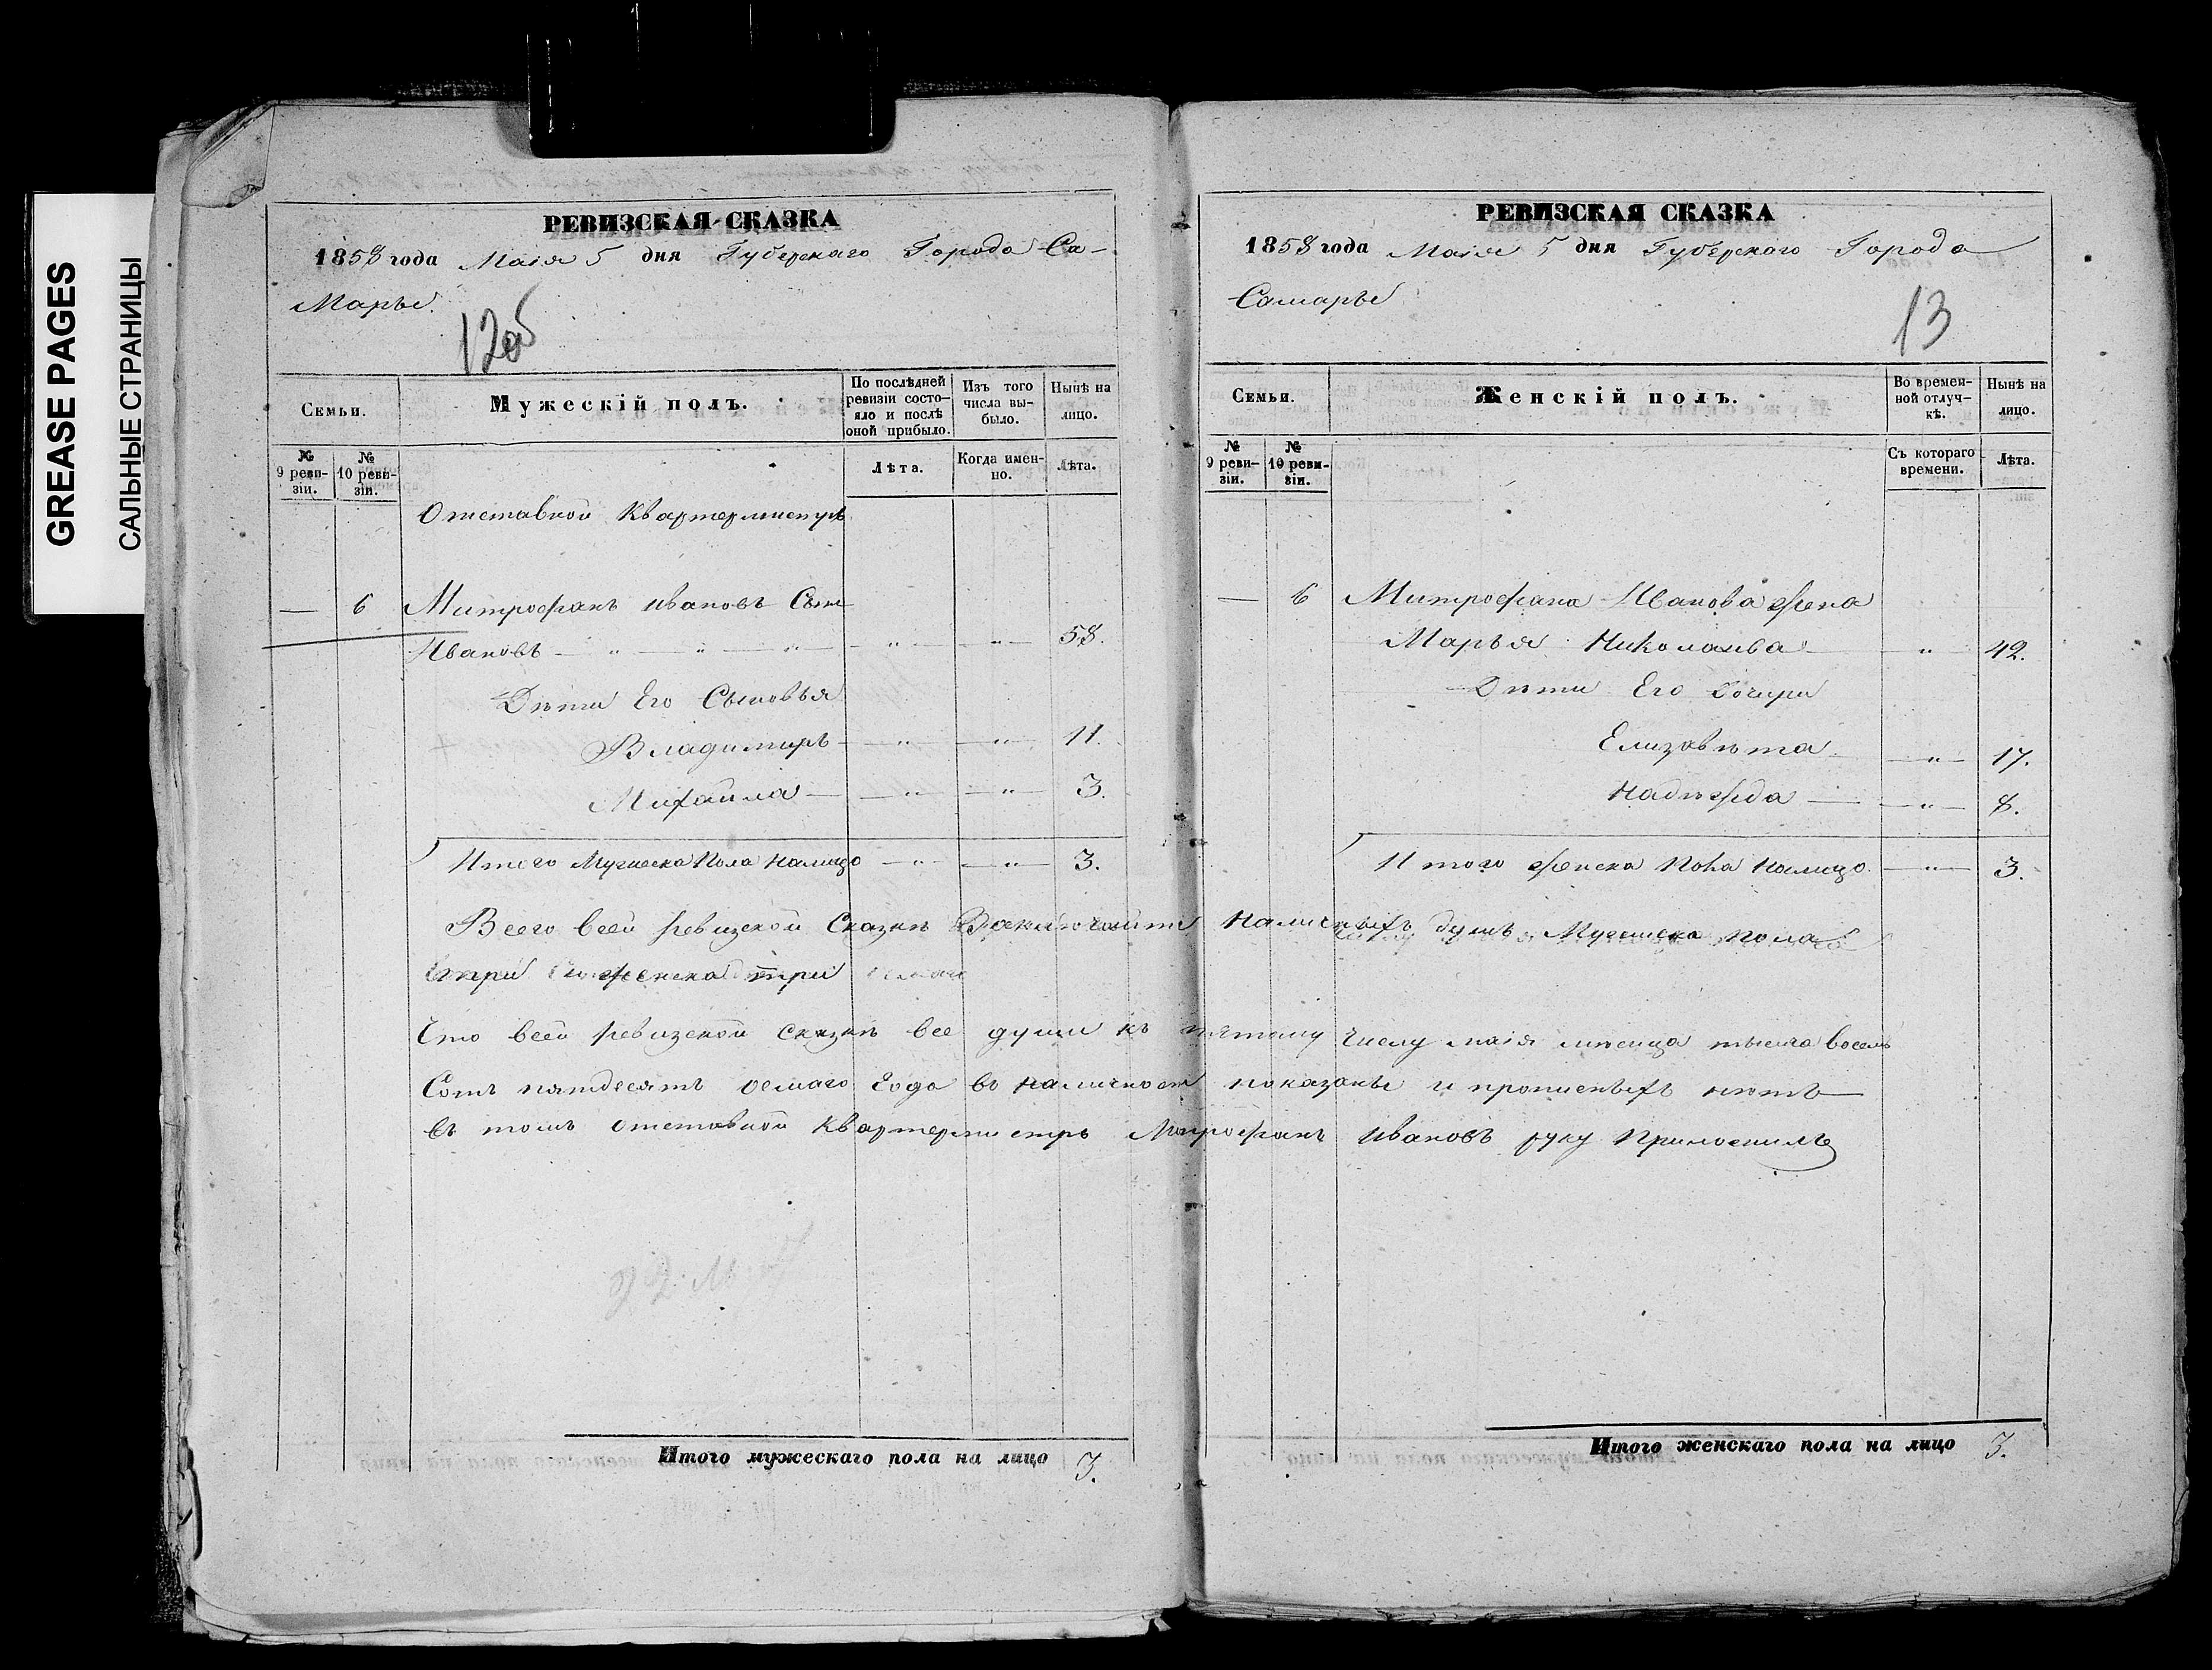 GREASE PAGES
САЛЬНЫЕ СТРАНИЦЫ
РЕВИЗСКАЯ СКАЗКА
1858 года Маія 5 дня Губерскаго Города Са-
Марье.
12об
Семьи.
Мужескій полъ.
По послѣдней ревизіи состояло и послѣ оной прибыло.
Изъ того числа выбыло.
Нынѣ на лицо.
№ 9 ревизіи.
№ 10 ревизіи.
Лѣта.
Когда именно.
Лѣта.
Отставной Квартермистръ
— 6 Митрофанъ Ивановъ Сынъ
Ивановъ — " — " — " — " — " — 58.
Дѣти Его Сыновья
Владимиръ — " — " — 11.
Михайла — " — " — 3.
Итого Мужеска Пола Налицо — " — " — 3.
РЕВИЗСКАЯ СКАЗКА
1858 года Маія 5 дня Губерскаго Города
Самарье
13
Семьи.
Женскій полъ.
Во временной отлучкѣ.
Нынѣ на лицо.
№ 9 ревизіи.
№ 10 ревизіи.
Съ котораго времени.
Лѣта.
— 6 Митрофана Иванова жена
Марья Николаива — " — 42.
Дѣти Его Дочери
Елизавѣта — " — 17.
Надѣжда — " — 8.
Итого женска Пола Налицо — " — 3.
Всего всей ревизской Сказкѣ Заключаите Наличныхъ душъ Мужеска пола
три женска три
Что всей ревизской сказкѣ все души къ пятому Числу маія мѣсеца тысеча восемь
Сотъ пятдесятъ осмаго Года въ наличност показаны и прописныхъ нѣтъ
въ томъ отставной Квартермистръ Митрофанъ Ивановъ руку Приложилъ
Итого мужескаго пола на лицо 3.
Итого женскаго пола на лицо 3.